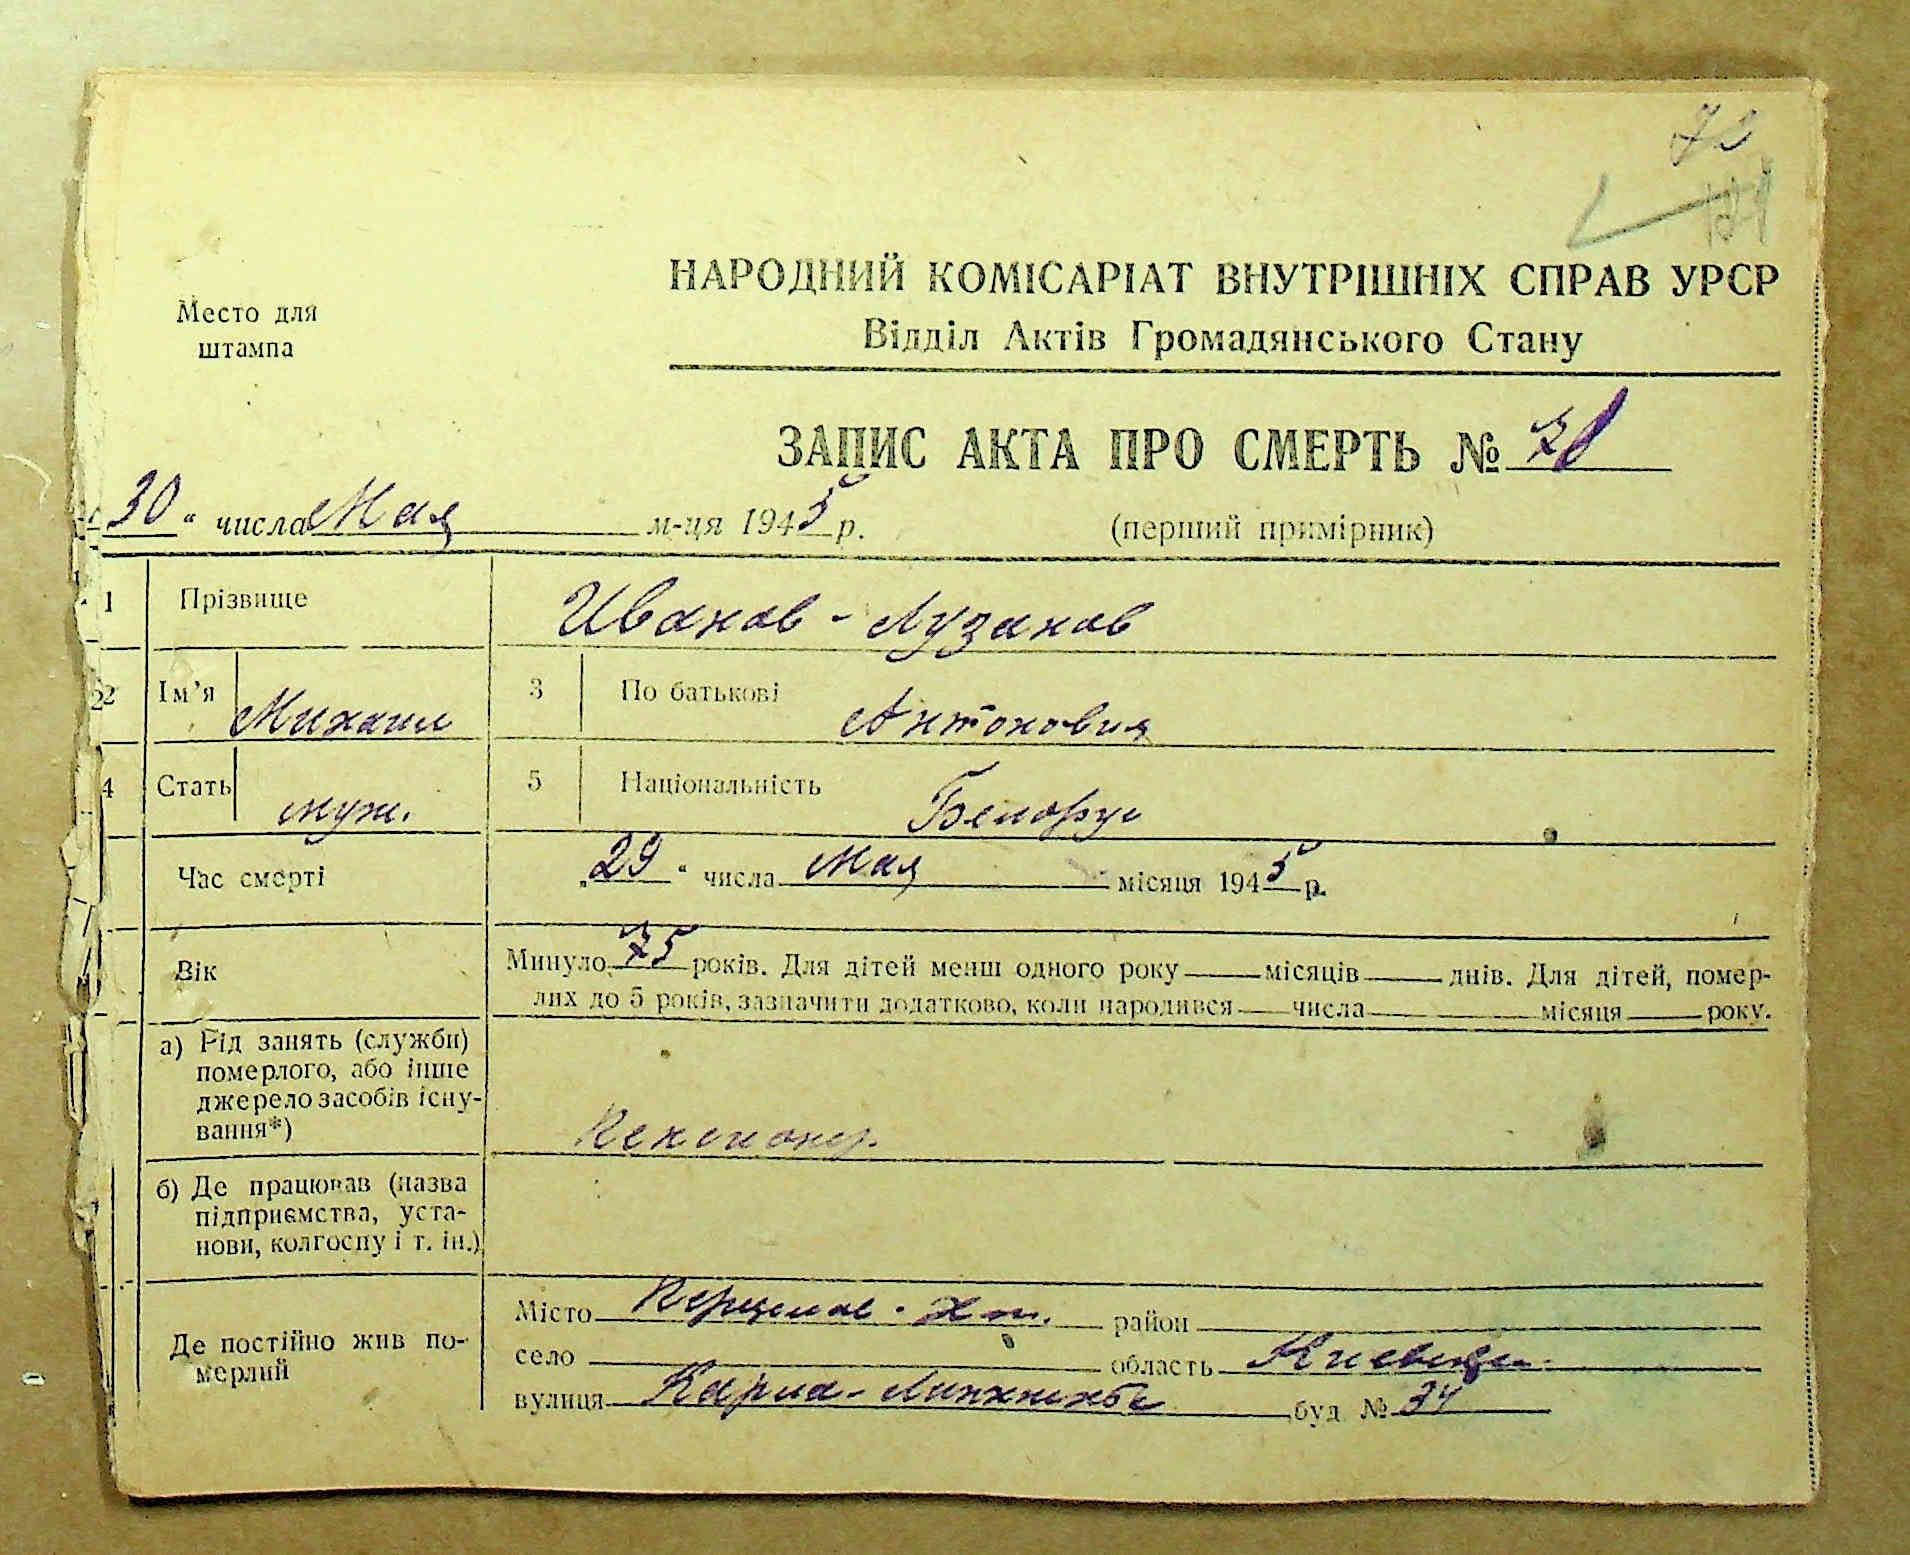 72
121
Место для
штампа
НАРОДНИЙ КОМІСАРІАТ ВНУТРІШНІХ СПРАВ УРСР
Відділ Актів Громадянського Стану
ЗАПИС АКТА ПРО СМЕРТЬ № 71
30 " числа Мая м-ця 1945 р. (перший примірник)
1 Прізвище Иванов - Лузанов
2 Ім'я Михаил 3 По батькові Антонович
4 Стать муж. 5 Національність Белорус
Час смерті „ 29 " числа Мая місяця 1945 р.
Вік Минуло 75 років. Для дітей менш одного року місяців днів. Для дітей, помер-
лих до 5 років, зазначити додатково, коли народився числа місяця року.
а) Рід занять (служби)
померлого, або інше
джерело засобів існу-
вання*) Пенсионер.
б) Де працював (назва
підприємства, уста-
нови, колгоспу і т. ін.)
Де постійно жив по-
мерлий
Місто район
село область Киевская
вулиця Карла - Либкнехта буд № 34